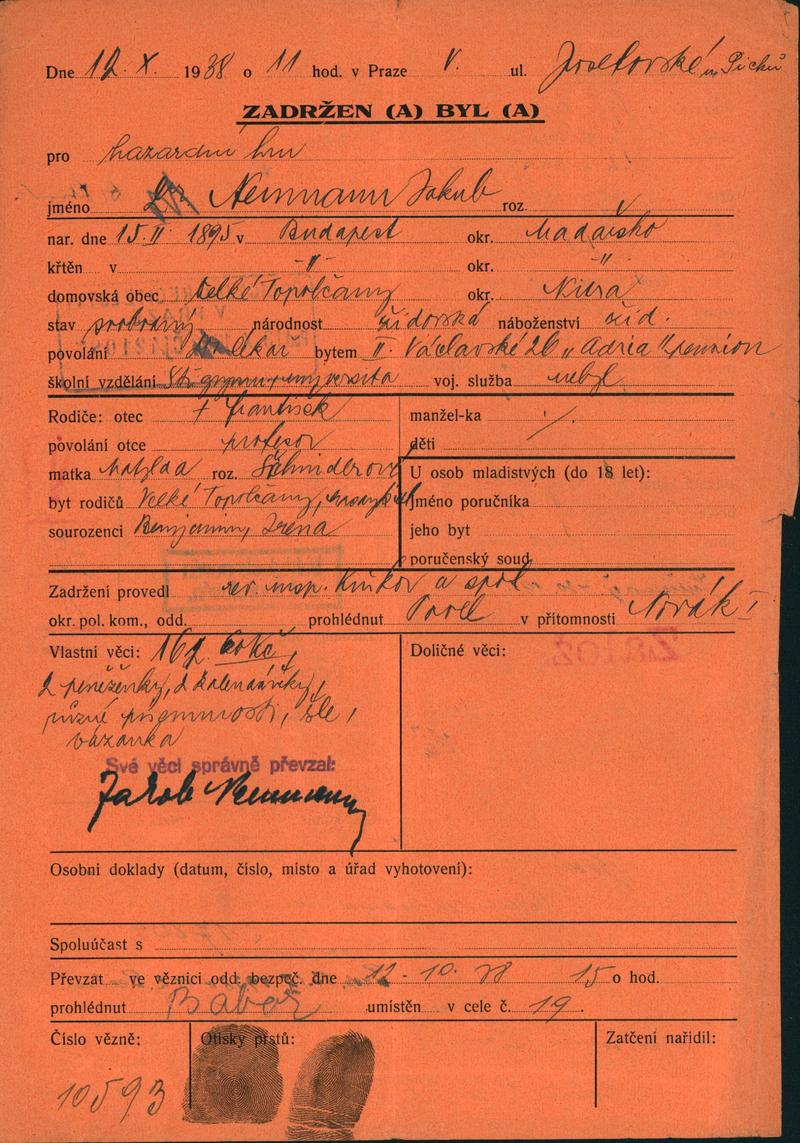 Dne 12. X. 1938 o 11 hod. v Praze V. ul. Josefovské u Píchů
ZADRŽEN (A) BYL (A)
pro hazardní hru
jméno Neumann Jakub roz.
nar. dne 15. II. 1895 v Budapest okr. Maďarsko
křtěn v -"- okr. "
domovská obec Velké Topolčany okr. Nitra
stav svobodný národnost židovská náboženství žid.
povolání lékař bytem II. Václavské 26 „Adria" pension
školní vzdělání universita voj. služba nebyl
Rodiče: otec † František manžel-ka
povolání otce profesor děti
matka roz. U osob mladistvých (do 18 let):
byt rodičů Velké Topolčany, jméno poručníka
sourozenci Benjamin, Irena jeho byt
poručenský soud
Zadržení provedl rev. insp. a spol.
okr. pol. kom., odd. prohlédnut Pavel v přítomnosti Novák I
Vlastní věci: 162. Kč, Doličné věci:
2 peněženky, 2 kalendáříky,
různé písemnosti, šle,
vázanka
Své věci správně převzal:
Jakob Neumann
Osobní doklady (datum, číslo, místo a úřad vyhotovení):
Spoluúčast s
Převzat ve věznici odd. bezpeč. dne 12-10. 38 15 o hod.
prohlédnut umístěn v cele č. 19.
Číslo vězně: Otisky prstů: Zatčení nařídil:
10593